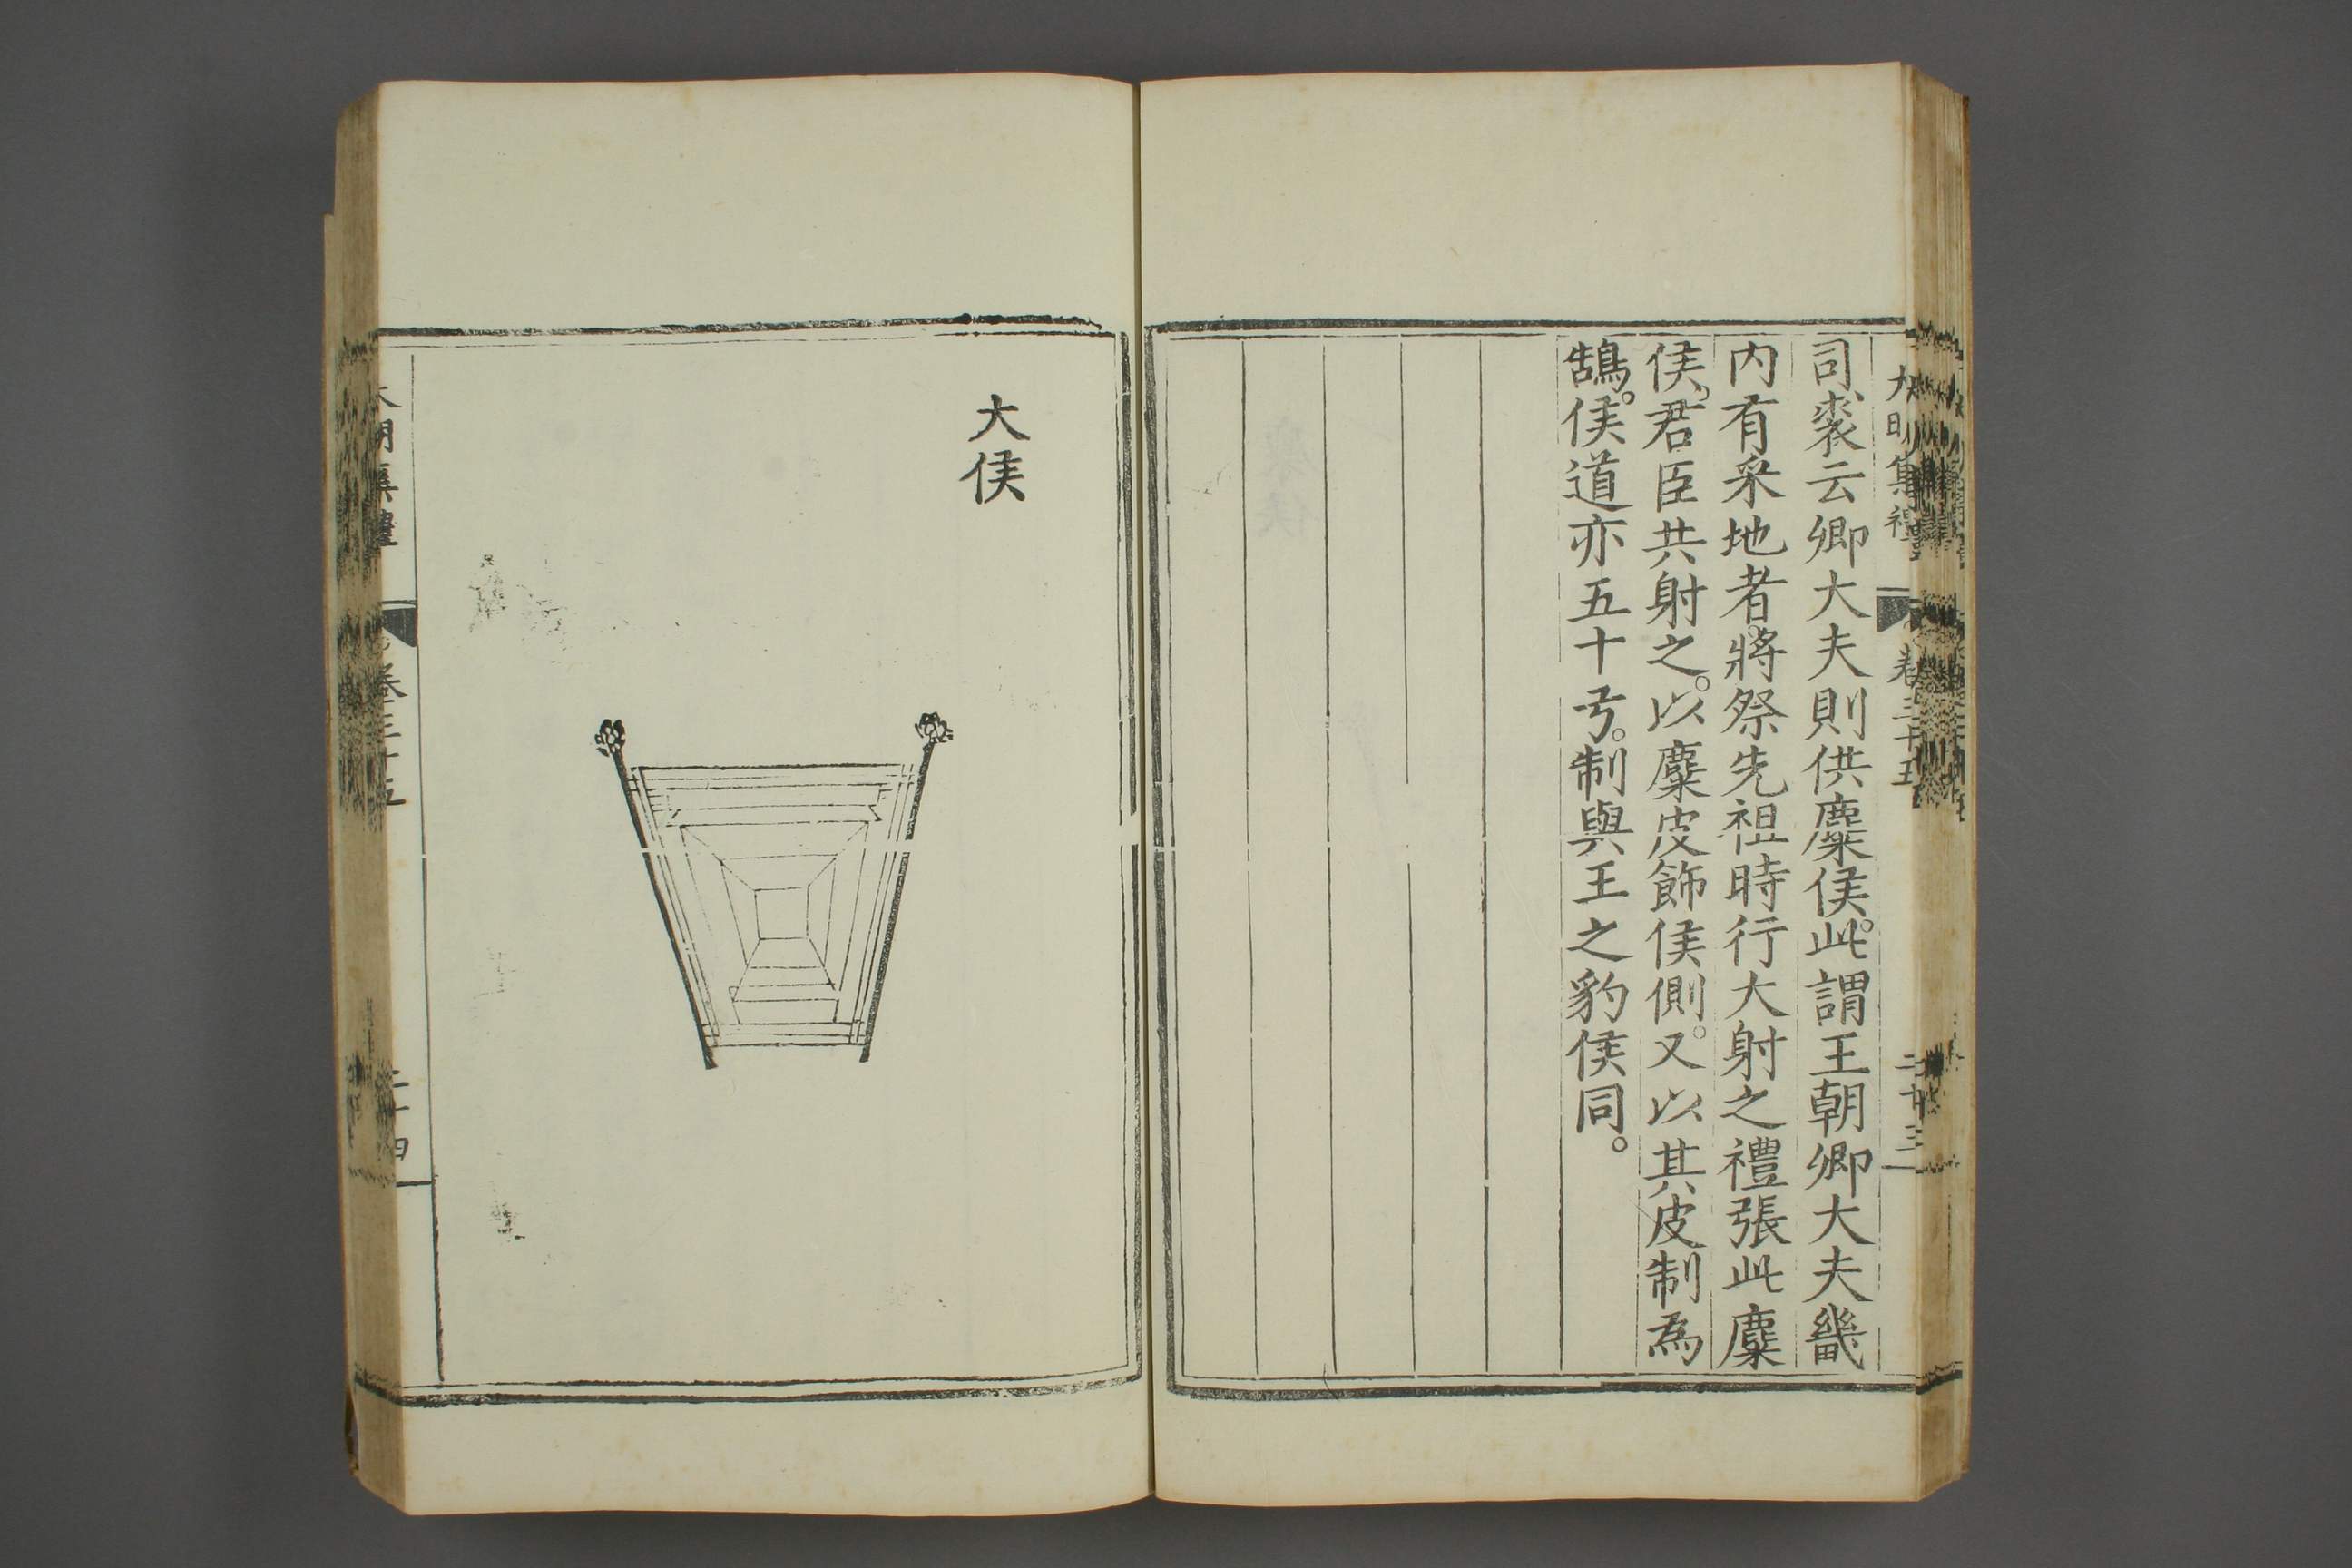 大明集禮 卷三十五 二十三
司裘云卿大夫則供麋侯。此謂王朝卿大夫畿
内有采地者。將祭先祖時行大射之禮張此麋
侯、君臣共射之。以麋皮飾侯側。又以其皮制為
鵠。侯道亦五十弓。制與王之豹侯同。
大侯
大明集禮 卷三十五 二十四